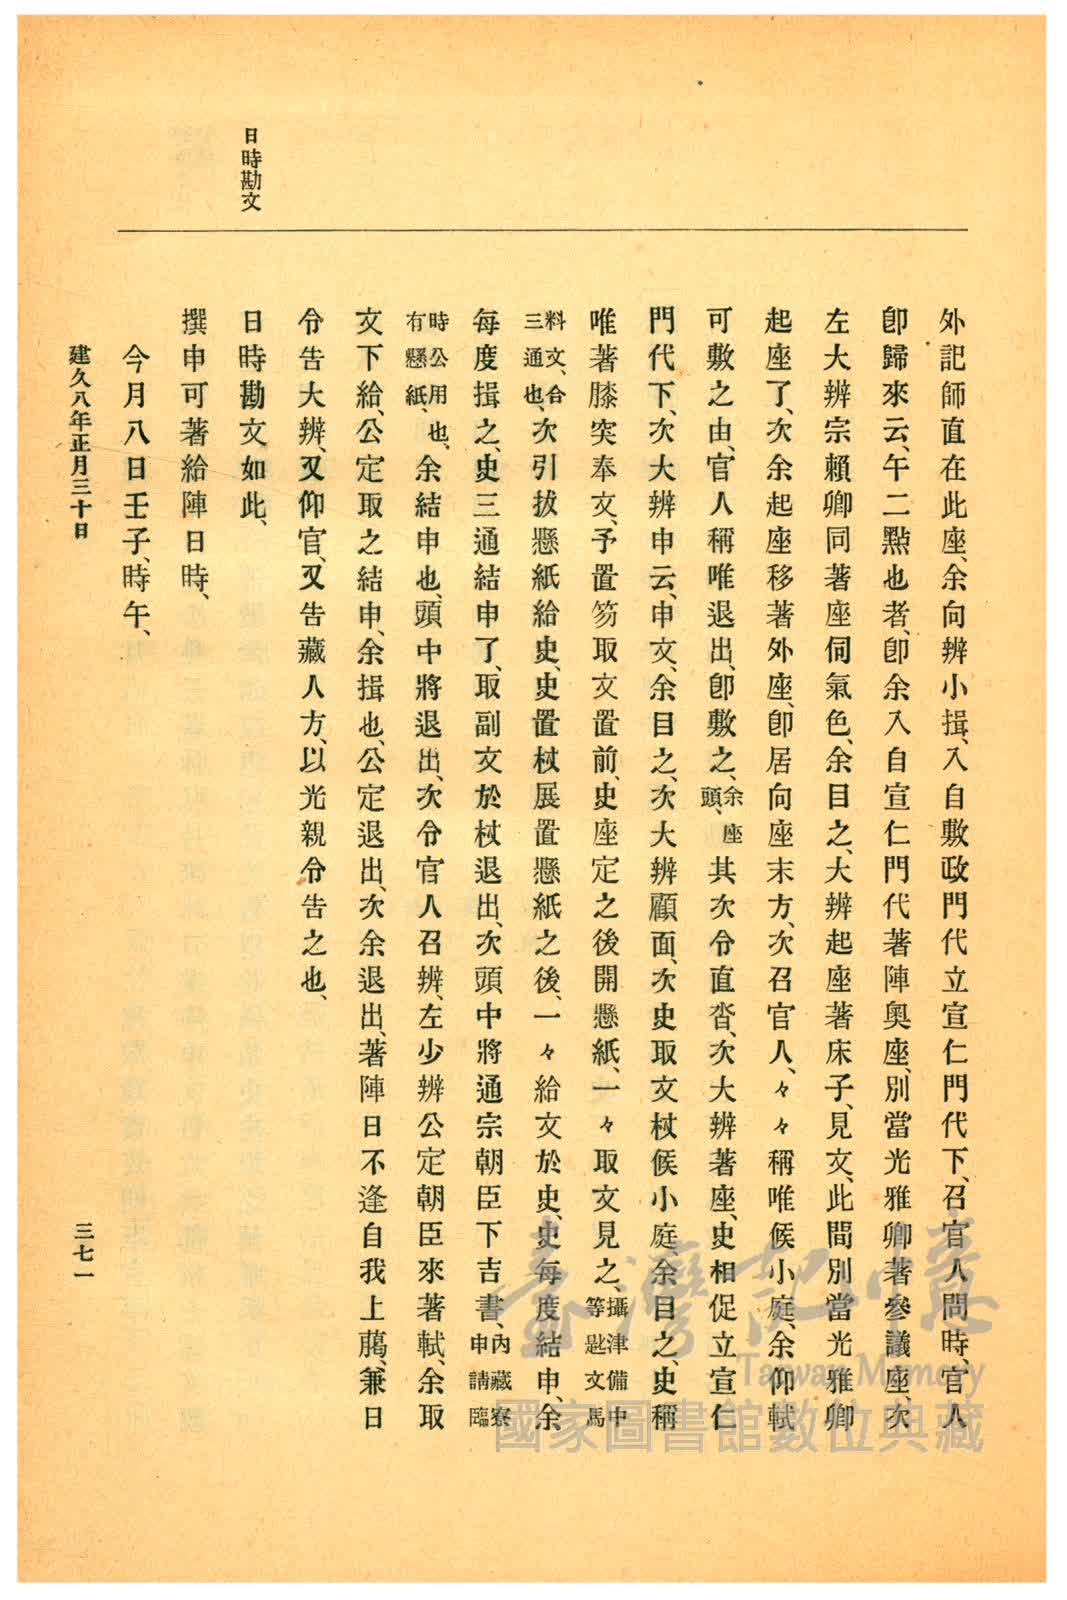 日時勘文
外記師直在此座、余向辨小揖、入自敷政門代立宣仁門代下、召官人問時、官人
卽歸來云、午二點也者、卽余入自宣仁門代著陣奧座、別當光雅卿著參議座、次
左大辨宗賴卿同著座伺氣色、余目之、大辨起座著床子、見文、此間別當光雅卿
起座了、次余起座移著外座、卽居向座末方、次召官人、々々稱唯候小庭、余仰軾
可敷之由、官人稱唯退出、卽敷之、余座頭、其次令直沓、次大辨著座、史相促立宣仁
門代下、次大辨申云、申文、余目之、次大辨顧面、次史取文杖候小庭、余目之、史稱
唯著膝突奉文、予置笏取文置前、史座定之後開懸紙、一々取文見之、攝津備中等匙文馬
料文、合三通也、次引拔懸紙給史、史置杖展置懸紙之後、一々給文於史、史每度結申、余
每度揖之、史三通結申了、取副文於杖退出、次頭中將通宗朝臣下吉書、內藏寮申請臨
時公用也、有懸紙、余結申也、頭中將退出、次令官人召辨、左少辨公定朝臣來著軾、余取
文下給、公定取之結申、余揖也、公定退出、次余退出、著陣日不逢自我上﨟、兼日
令告大辨、又仰官、又告藏人方、以光親令告之也、
日時勘文如此、
撰申可著給陣日時、
今月八日壬子、時午、
建久八年正月三十日
三七一
臺灣記憶
Taiwan Memory
國家圖書館數位典藏